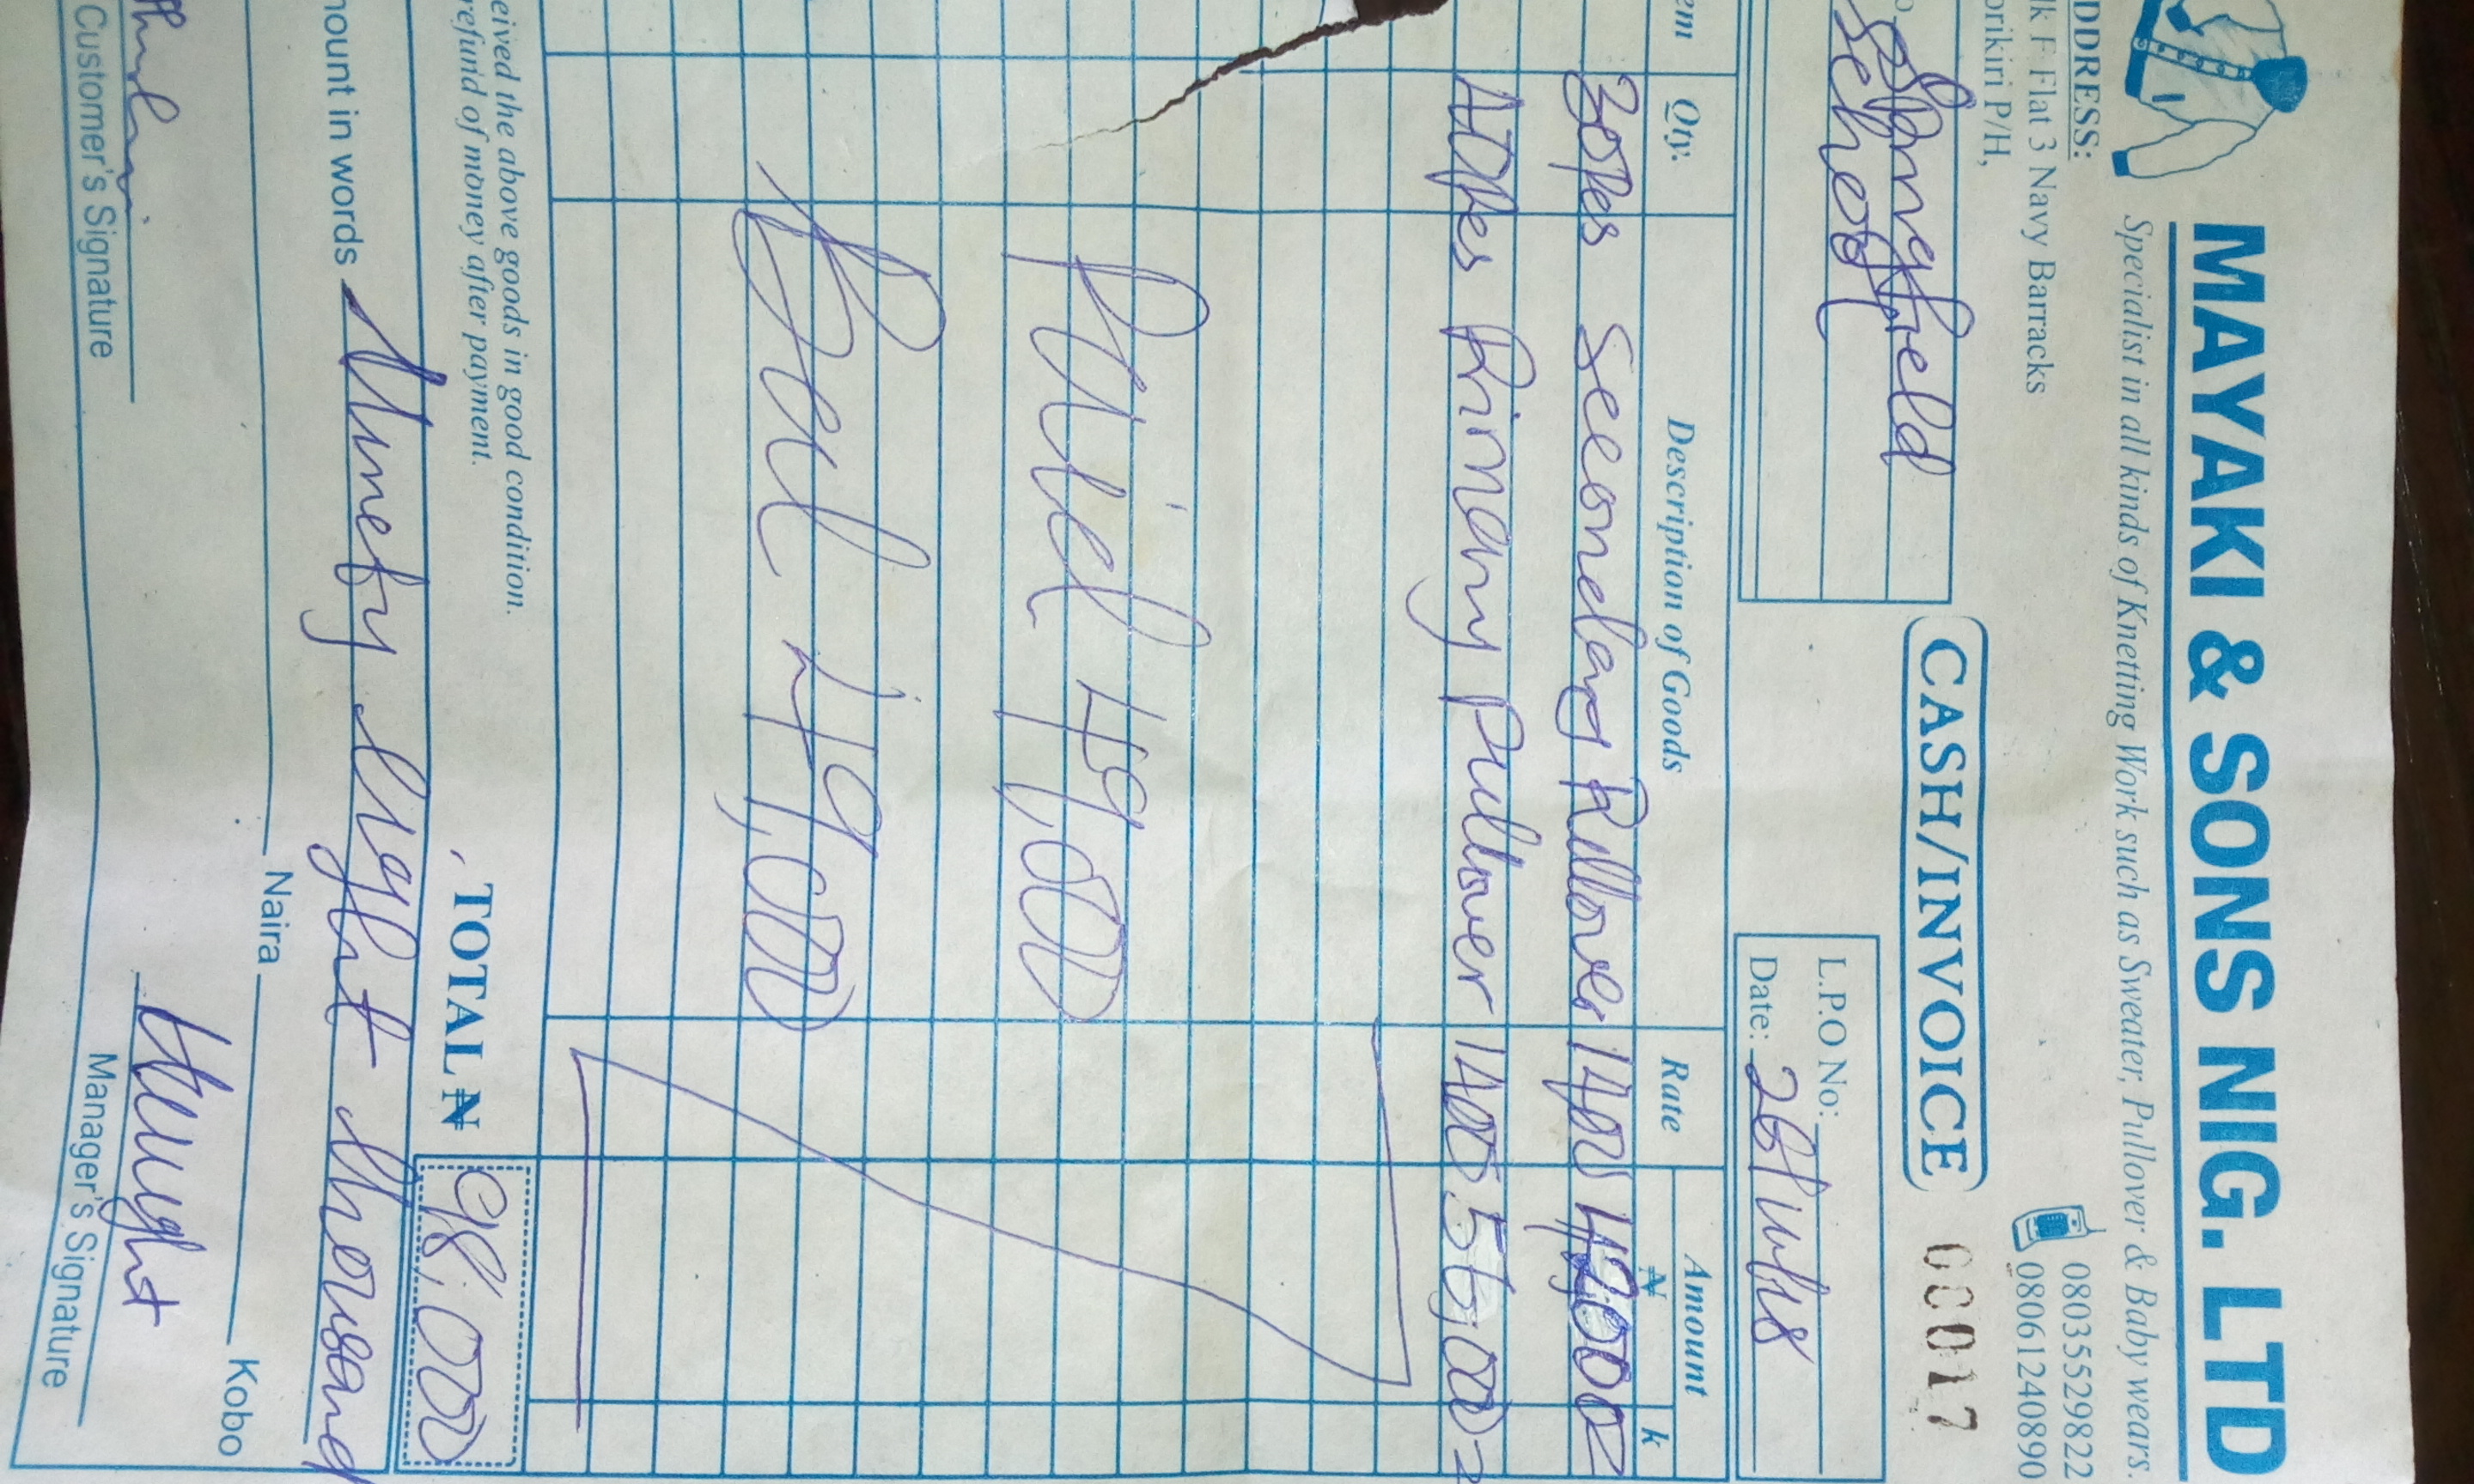 MAYAKI & SONS NIG. LTD
Specialist in all kinds of Knetting Work such as Sweater, Pullover & Baby wears.
DDRESS:
lk F Flat 3 Navy Barracks
orikiri P/H,
08035529822
08061240890
CASH/INVOICE
00017
Springfield
School
L.P.O No:
Date:
em Qty. Description of Goods Rate Amount
₦ k
30Pcs Secondary Pullover 1400 42,000
40Pcs Primary Pullover 1400 56,000
Paid 49,000
Bal 49,000
eived the above goods in good condition.
refund of money after payment.
TOTAL ₦ 98,000
mount in words Ninety Eight Thousand
Naira Kobo
Customer's Signature
Manager's Signature